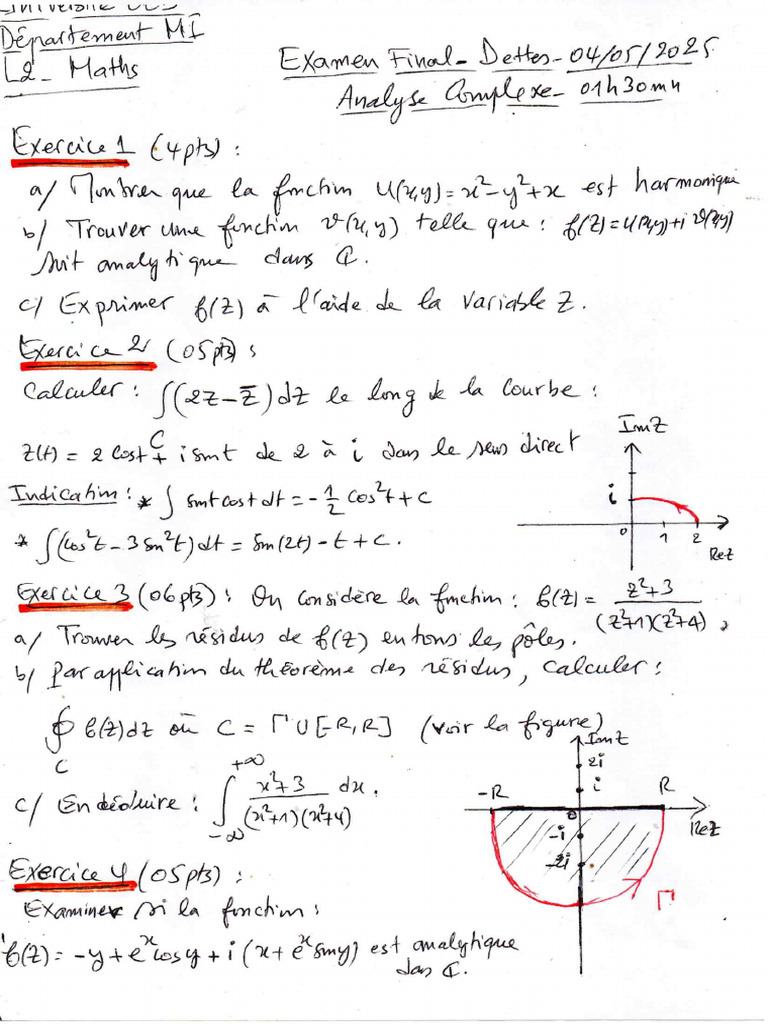 Université
Département MI
L2_ Maths
Examen Final_ Dettes_ 04/05/2025
Analyse Complexe_ 01h30mn
Exercice 1 (4pts) :
a/ Montrer que la fonction u(x,y) = x² - y² + x est harmonique
b/ Trouver une fonction v(x,y) telle que : f(z) = u(x,y) + i v(x,y)
soit analytique dans ℂ.
c/ Exprimer f(z) à l'aide de la variable z.
Exercice 2 (05pts) :
Calculer : ∫_C (2z - z̄) dz le long de la courbe :
z(t) = 2 cost + i sint de 2 à i dans le sens direct
Indication : * ∫ sint cost dt = -1/2 cos²t + c
* ∫(cos²t - 3 sin²t) dt = sin(2t) - t + c.
Im Z
i
0 1 2
Re Z
Exercice 3 (06pts) : On considère la fonction : f(z) = (z²+3)/((z²+1)(z²+4)) ,
a/ Trouver les résidus de f(z) en tous les pôles.
b/ Par application du théorème des résidus, calculer :
∮_C f(z) dz où C = Γ ∪ [-R, R] (voir la figure)
c/ En déduire : ∫_{-∞}^{+∞} (x²+3)/((x²+1)(x²+4)) dx .
Im Z
2i
i
-R R
0
Re Z
-i
-2i
Γ
Exercice 4 (05pts) :
Examiner si la fonction :
f(z) = -y + eˣ cosy + i (x + eˣ siny) est analytique
dans ℂ.